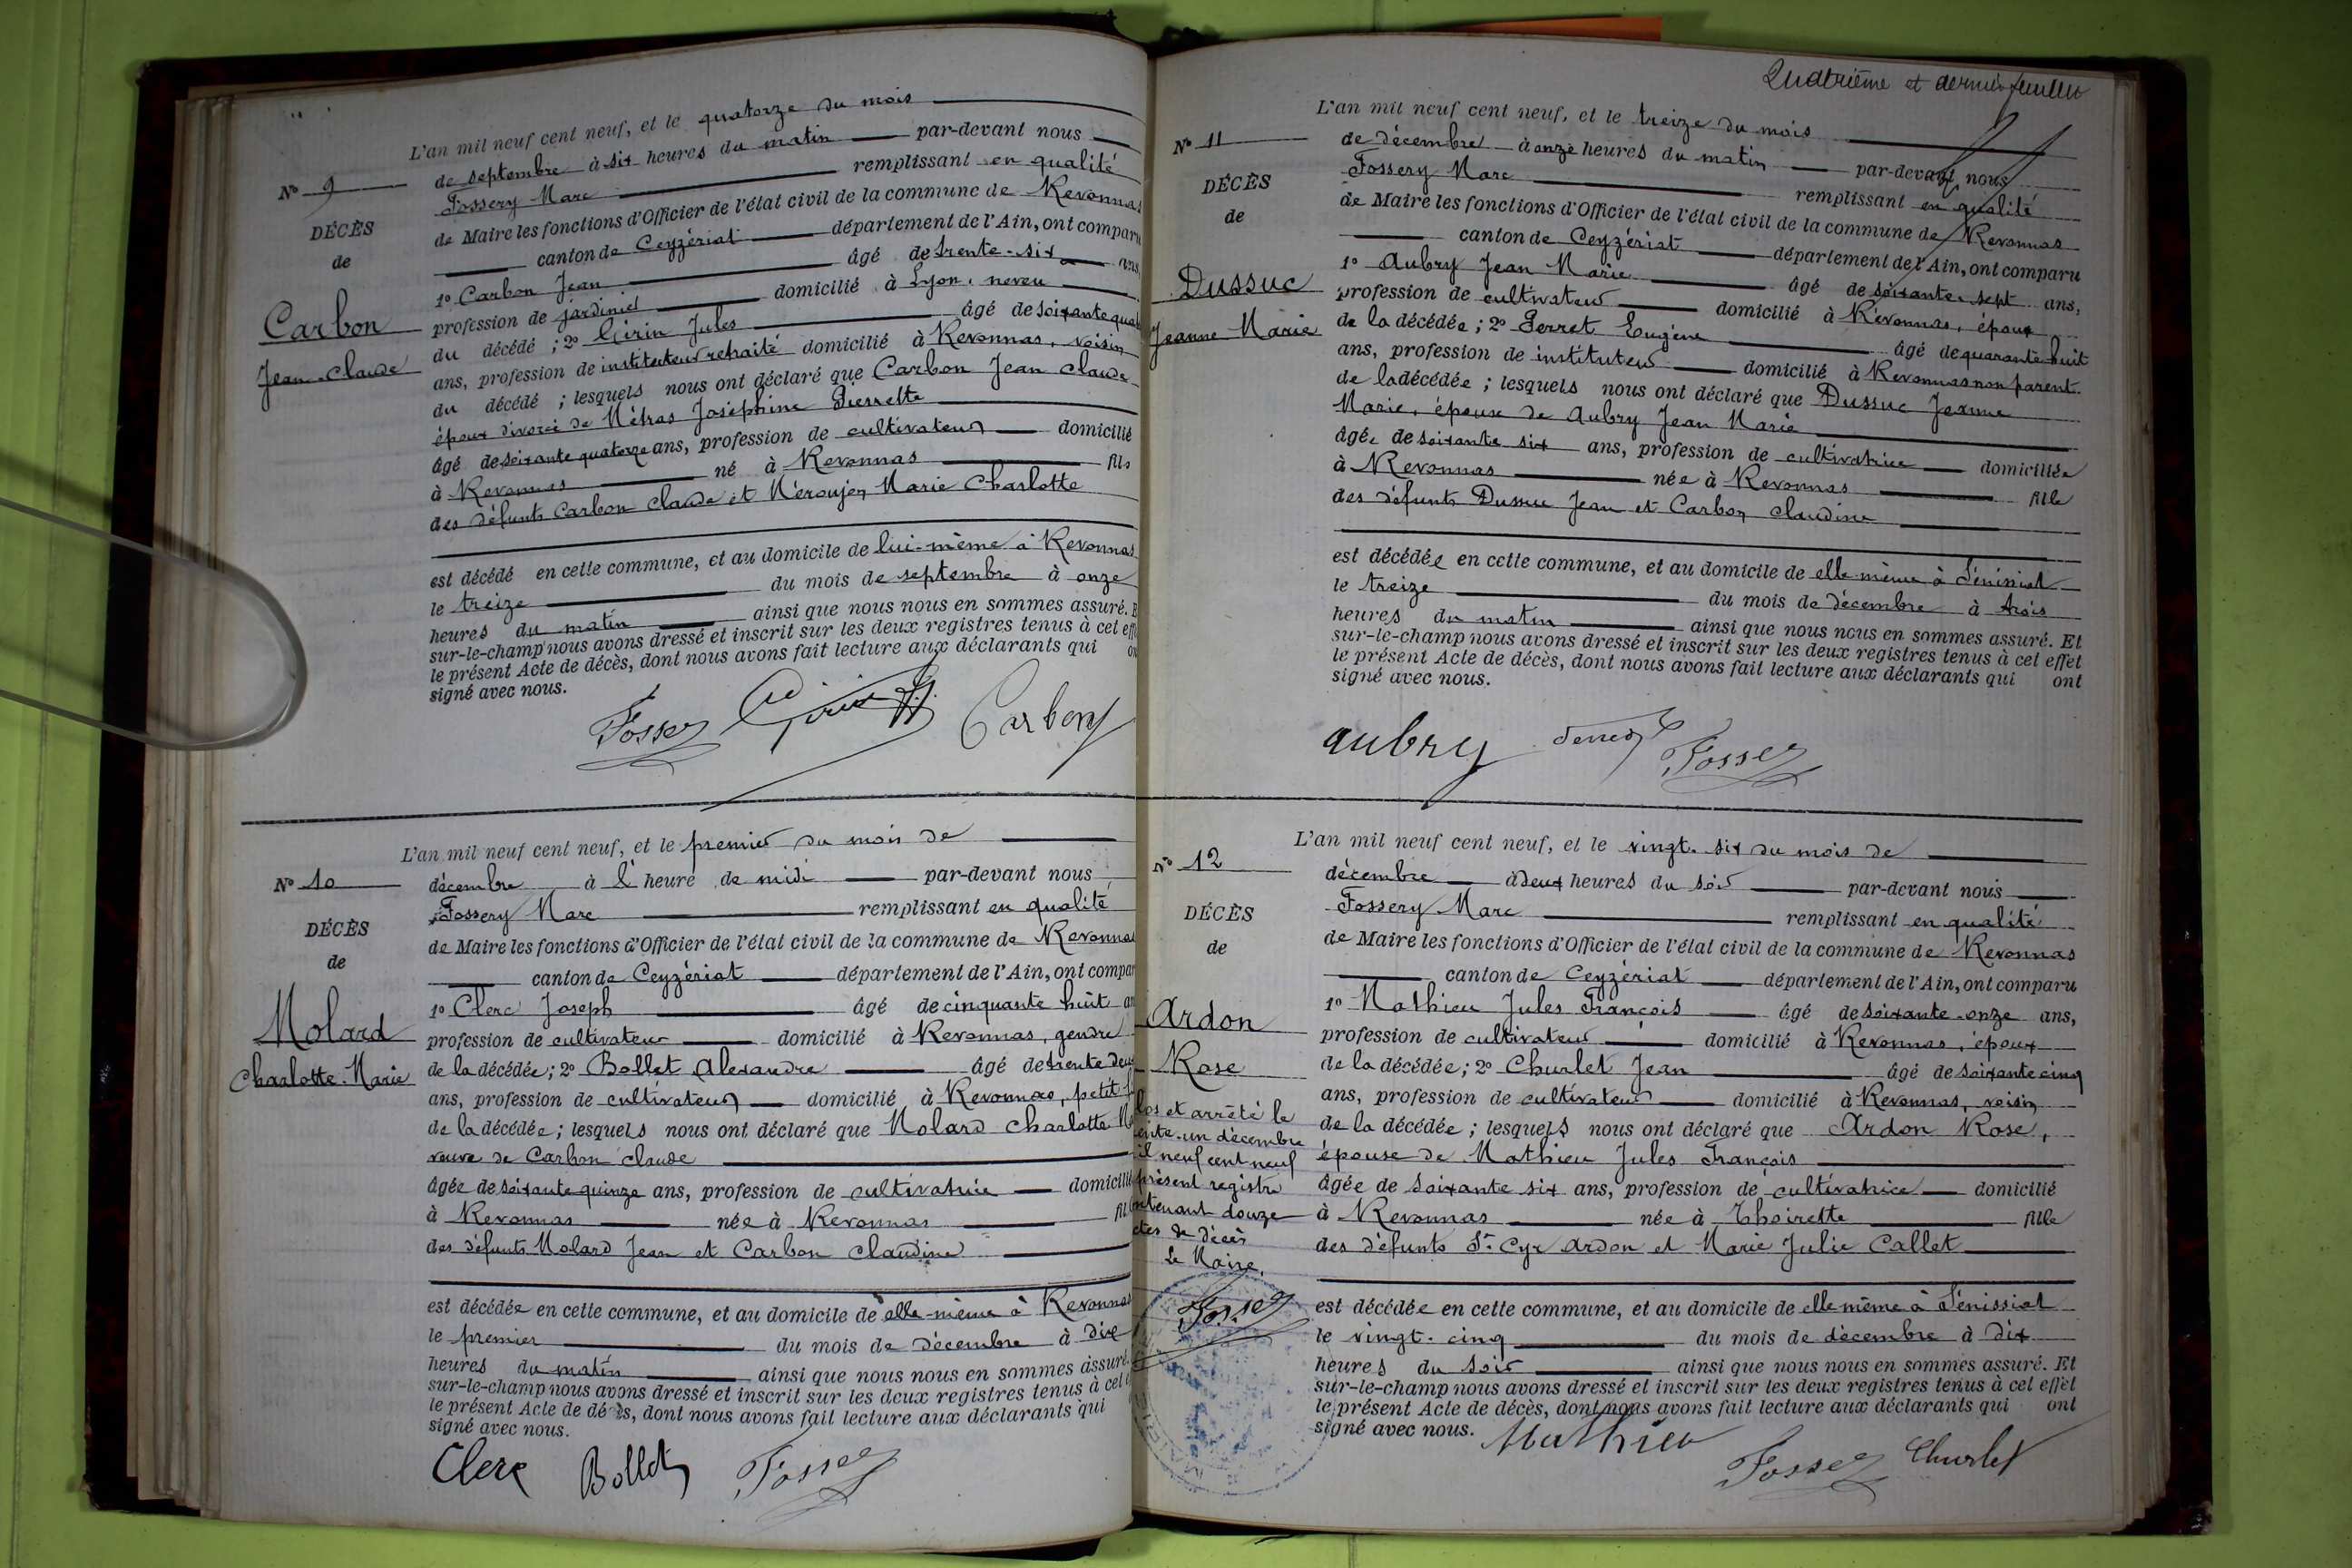 L'an mil neuf cent neuf, et le quatorze du mois
N° 9
de septembre à six heures du matin par-devant nous
Fossery Marc remplissant en qualité
DÉCÈS
de Maire les fonctions d'Officier de l'état civil de la commune de Revonnas
de
canton de Ceyzériat département de l'Ain, ont comparu
1° Carbon Jean âgé de trente-six ans
Carbon
profession de jardinier domicilié à Lyon, neveu
Jean-Claude
du décédé ; 2° Girin Jules âgé de soixante quat
ans, profession de instituteur retraité domicilié à Revonnas, voisin
du décédé ; lesquels nous ont déclaré que Carbon Jean Claude
époux divorcé de Métras Joséphine Pierrette
âgé de soixante quatorze ans, profession de cultivateur domicilié
à Revonnas né à Revonnas fils
des défunts Carbon Claude et Marie Charlotte
est décédé en cette commune, et au domicile de lui-même à Revonnas
le treize du mois de septembre à onze
heures du matin ainsi que nous nous en sommes assuré. E
sur-le-champ nous avons dressé et inscrit sur les deux registres tenus à cet eff
le présent Acte de décès, dont nous avons fait lecture aux déclarants qui on
signé avec nous.
Fossery Girin Carbon
L'an mil neuf cent neuf, et le premier du mois de
N° 10
décembre à l'heure de midi par-devant nous
Fossery Marc remplissant en qualité
DÉCÈS
de Maire les fonctions d'Officier de l'état civil de la commune de Revonnas
de
canton de Ceyzériat département de l'Ain, ont compar
1° Clerc Joseph âgé de cinquante huit an
Molard
profession de cultivateur domicilié à Revonnas, gendre
Charlotte-Marie
de la décédée ; 2° Bollet Alexandre âgé de trente deux
ans, profession de cultivateur domicilié à Revonnas, petit f
de la décédée ; lesquels nous ont déclaré que Molard Charlotte M
veuve de Carbon Claude
âgée de soixante quinze ans, profession de cultivatrice domicilié
à Revonnas née à Revonnas fil
des défunts Molard Jean et Carbon Claudine
est décédée en cette commune, et au domicile de elle-même à Revonnas
le premier du mois de décembre à dix
heures du matin ainsi que nous nous en sommes assuré.
sur-le-champ nous avons dressé et inscrit sur les deux registres tenus à cet e
le présent Acte de décès, dont nous avons fait lecture aux déclarants qui
signé avec nous.
Clerc Bollet Fossery
Quatrième et dernier feuillet
L'an mil neuf cent neuf, et le treize du mois
N° 11
de décembre à onze heures du matin par-devant nous
Fossery Marc remplissant en qualité
DÉCÈS
de Maire les fonctions d'Officier de l'état civil de la commune de Revonnas
de
canton de Ceyzériat département de l'Ain, ont comparu
1° Aubry Jean Marie âgé de soixante-sept ans,
Dussuc
profession de cultivateur domicilié à Revonnas, époux
Jeanne Marie
de la décédée ; 2° Perret Eugène âgé de quarante huit
ans, profession de instituteur domicilié à Revonnas non parent
de la décédée ; lesquels nous ont déclaré que Dussuc Jeanne
Marie, épouse de Aubry Jean Marie
âgée de soixante six ans, profession de cultivatrice domiciliée
à Revonnas née à Revonnas fille
des défunts Dussuc Jean et Carbon Claudine
est décédée en cette commune, et au domicile de elle-même à Sénissiat
le treize du mois de décembre à trois
heures du matin ainsi que nous nous en sommes assuré. Et
sur-le-champ nous avons dressé et inscrit sur les deux registres tenus à cet effet
le présent Acte de décès, dont nous avons fait lecture aux déclarants qui ont
signé avec nous.
aubry Perret Fossery
L'an mil neuf cent neuf, et le vingt-six du mois de
N° 12
décembre à deux heures du soir par-devant nous
Fossery Marc remplissant en qualité
DÉCÈS
de Maire les fonctions d'Officier de l'état civil de la commune de Revonnas
de
canton de Ceyzériat département de l'Ain, ont comparu
1° Mathieu Jules François âgé de soixante-onze ans,
Ardon
profession de cultivateur domicilié à Revonnas, époux
Rose
de la décédée ; 2° Churlet Jean âgé de soixante cinq
ans, profession de cultivateur domicilié à Revonnas, voisin
de la décédée ; lesquels nous ont déclaré que Ardon Rose,
épouse de Mathieu Jules François
âgée de soixante six ans, profession de cultivatrice domicilié
à Revonnas née à Thoirette fille
des défunts St Cyr Ardon et Marie Julie Callet
est décédée en cette commune, et au domicile de elle même à Sénissiat
le vingt-cinq du mois de décembre à dix
heures du soir ainsi que nous nous en sommes assuré. Et
sur-le-champ nous avons dressé et inscrit sur les deux registres tenus à cet effet
le présent Acte de décès, dont nous avons fait lecture aux déclarants qui ont
signé avec nous.
Mathieu Fossery Churlet
los et arrêté le
ente-un décembre
il neuf cent neuf
présent registre
ntenant douze
ctes de décès
Le Maire,
Fossery